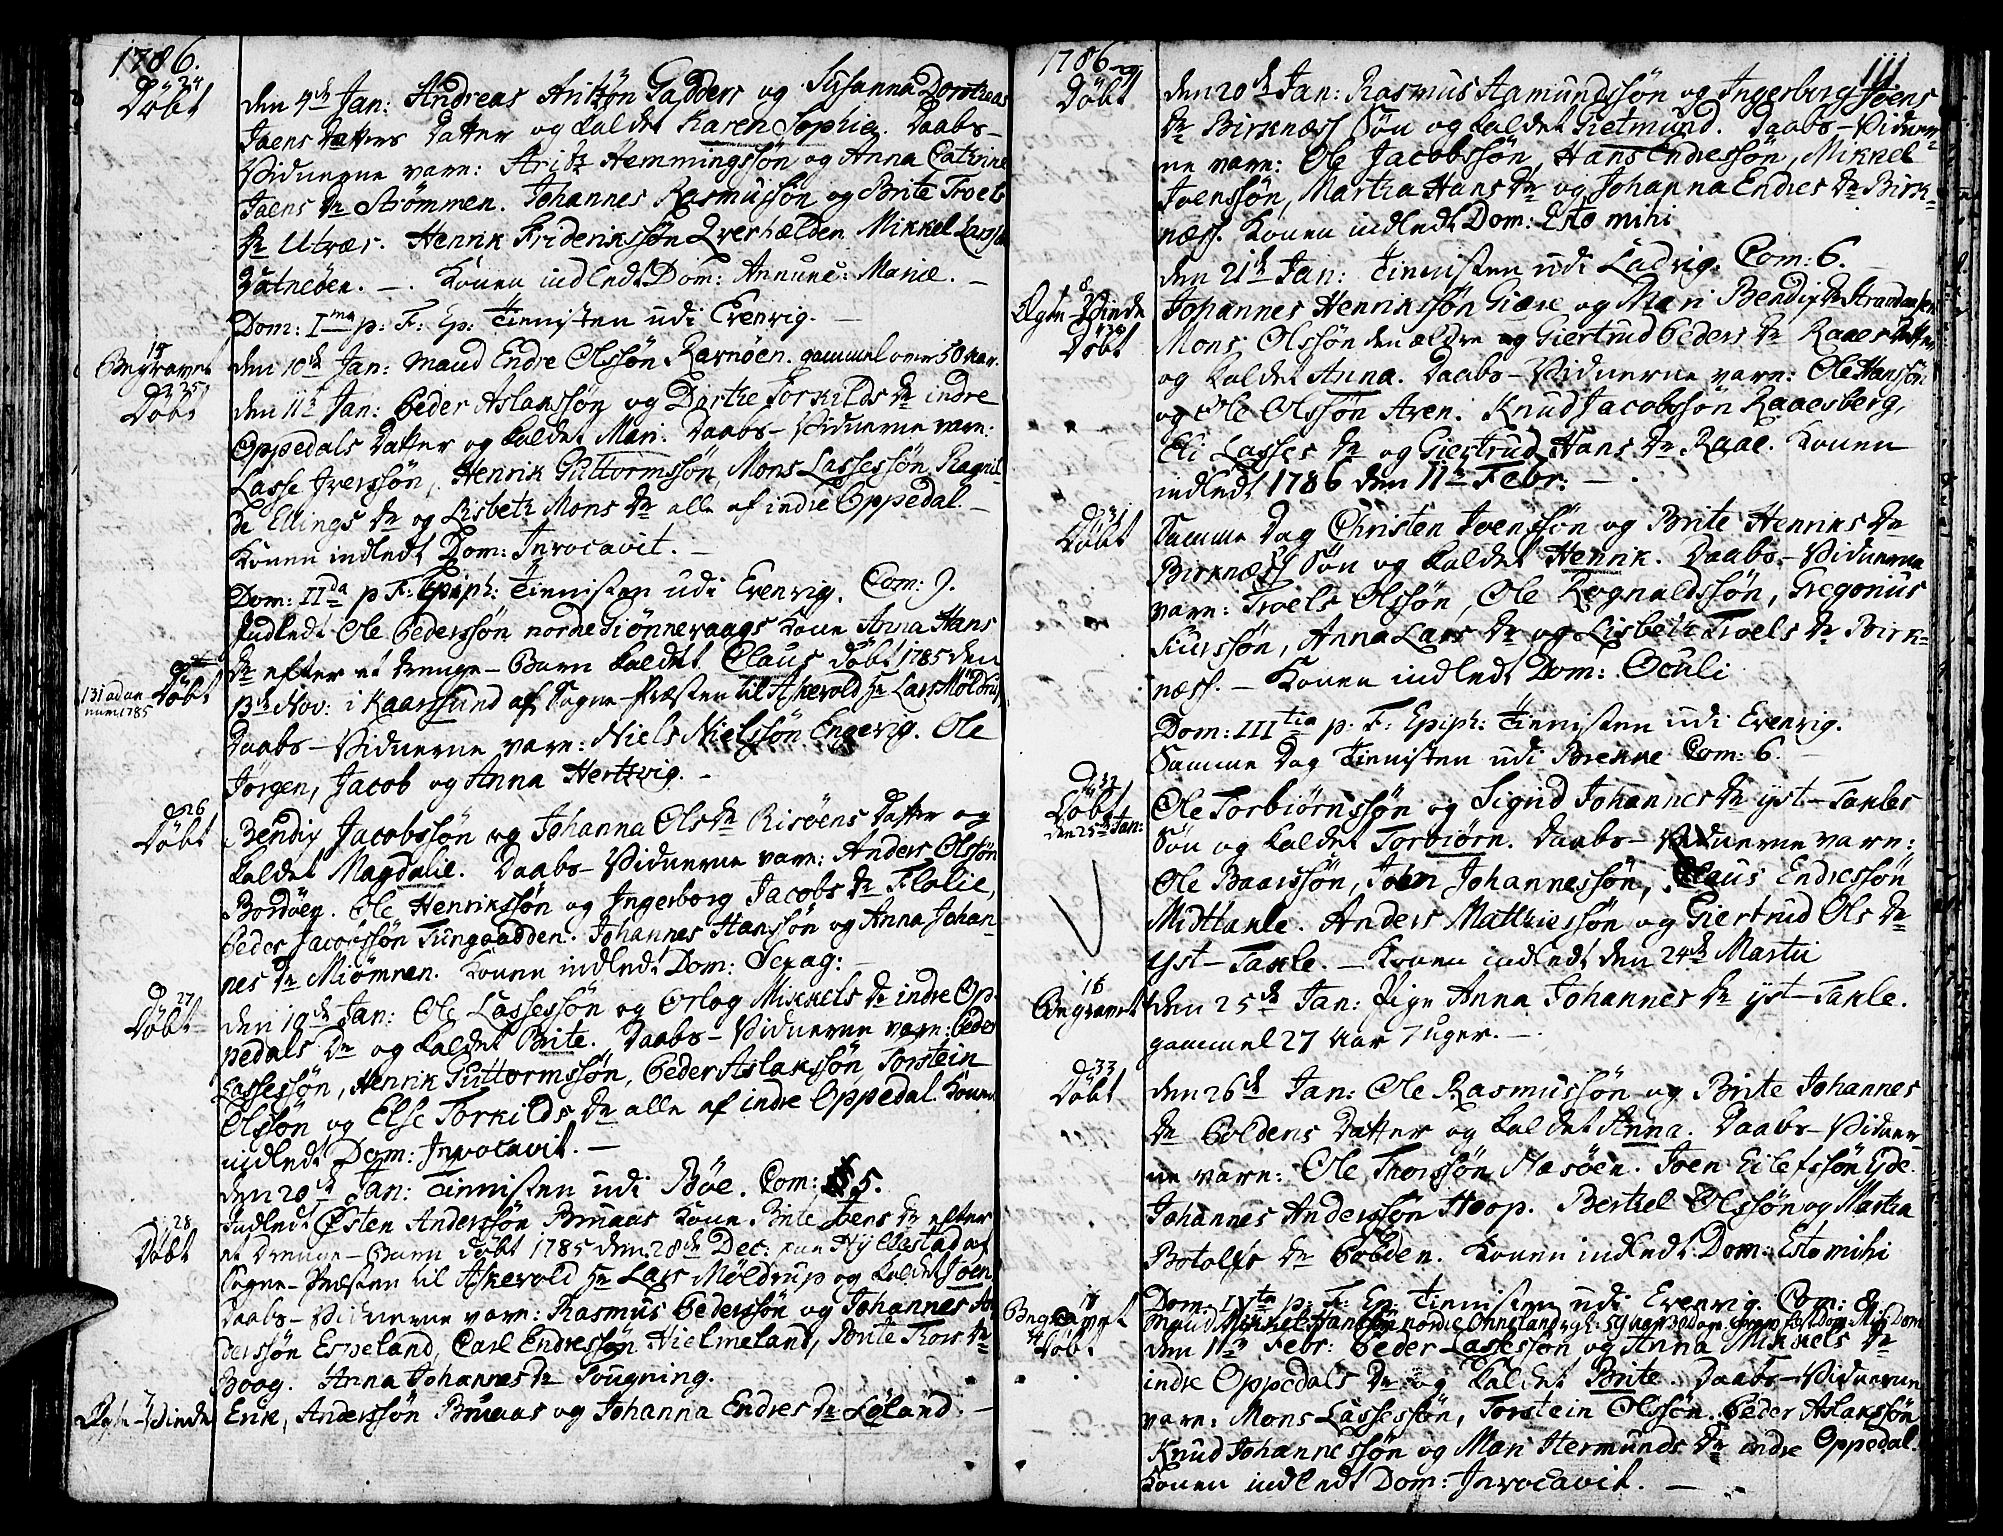 1786.
24
Døbt
den 4de Jan: Andreas Aritzøn Gadders og Susanna Dorothea
Joens Datters Datter og kaldet Karen Sophie. Daabs-
Vidnerne vare: Aritz Hemmingssøn og Anna Catrine
Joens Dr Strømmen. Johannes Rasmussøn og Brite Troels
Dr Utvær. Henrik Frideriksøn Qverhælden Mikkel Larss:
Datneøen. -. Konen indledt Dom: Annunc: Mariæ. -
Dom: Ima p: F: Ep: Tienisten udi Evenvig. -
Begravet
den 10de Jan: Mand Endre Olssøn Ravnøen. gammel over 50 Aar.
25
Døbt
den 11te Jan: Peder Aslakssøn og Dorthe Torkilds Dr indre
Oppedals Datter og kaldet Mari. Daabs-Vidnerne vare:
Lasse Iverssøn, Henrik Guttormssøn, Mons Lassesøn, Ragnil-
de Ellings Dr og Lisbeth Mons Dr alle af indre Oppedal. -
Konen indledt Dom: Invocavit. -
Dom: IIda p F: Epiph: Tienisten udi Evenvig. Com: 9.
Indledt Ole Pederssøn nordre Giønnevaags Kone Anna Hans
131 ad an
num 1785
Døbt
Dr efter et Drenge-Barn kaldet Claus døbt 1785 den
13de Nov: i Kaarssund af Sogne-Præsten til Askevold Hr Lars Møldrup
Daabs-Vidnerne vare: Niels Nielssøn Engevig. Ole
Jørgen, Jacob og Anna Hertzvig. -
26
Døbt
Bendix Jacobssøn og Johanna Ols Dr Risøens Datter og
kaldet Magdalie. Daabs-Vidnerne vare: Anders Olssøn
Bordøen. Ole Henrikssøn og Ingerborg Jacobs Dr Flolie,
Peder Jacobssøn Tungodden. Johannes Hanssøn og Anna Johan-
nes Dr Miømnen. Konen indledt Dom: Sexag: -
27
Døbt
den 19de Jan: Ole Lassessøn og Orlog Mikkels Dr indre Op-
pedals Dr og kaldet Brite. Daabs-Vidnerne vare: Peder
Lassessøn, Henrik Guttormssøn, Peder Aslakssøn, Torstein
Olssøn og Else Torkilds Dr alle af indre Oppedal. Konen
indledt Dom: Invocavit. -
den 20de Jan: Tienisten udi Bøe. Com: 5.
28
Døbt
Indledt Østen Anderssøn Bruaas Kone Brite Joens Dr efter
et Drenge-Barn døbt 1785 den 28de Dec: paa Hyllestad af
Sogne-Præsten til Askevold Hr Lars Møldrup og kaldet Joen
Daabs-Vidnerne vare: Rasmus Pederssøn og Johannes An
derssøn Espeland, Carl Endressøn Hielmeland, Brite Thors Dr
Boog. Anna Johannes Dr Sougning.
7
Ægte-Viede
Erik, Anderssøn Bruaas og Johanna Endres Dr Løland. -
1786
111
Døbt
den 20de Jan: Rasmus Aamundssøn og Ingerborg Joens
Dr Birknæss Søn og kaldet Gietmund. Daabs-Vidner-
ne vare: Ole Jacobssøn, Hans Endressøn, Mikkel
Joenssøn, Martha Hans Dr og Johanna Endres Dr Birk-
næss. Konen indledt Dom: Esto mihi
den 21de Jan: Tienisten udi Ladvig. Com: 6.
8
Ægte-Viede
Johannes Henrikssøn Giære og Mari Bendix Dr
30
Døbt
Mons Olssøn den ældre og Giertrud Peders Dr Raaes Datter
og kaldet Anna. Daabs-Vidnerne vare: Ole Hanssøn
og Ole Olssøn Aven. Knud Jacobssøn Raaesberg,
Eli Lasses Dr og Giertrud Hans Dr Raae. Konen
indledt 1786 den 11te Febr: -.
31
Døbt
Samme Dag Christen Ivenssøn og Brite Henriks Dr
Birknæss Søn og kaldet Henrik. Daabs-Vidnerne
vare: Troels Olssøn, Ole Rognaldssøn, Gregorius
Siurssøn, Anna Lars Dr og Lisbeth Troels Dr Birk-
næss. - Konen indledt Dom: Oculi
Dom: IIItia p: F: Epiph: Tienisten udi Evenvig.
Samme Dag Tienisten udi Brekke Com: 6.
32
Døbt
den 25de Jan:
Ole Torbiørnssøn og Sigrid Johannes Dr yst-Takles
Søn og kaldet Torbiørn. Daabs-Vidnerne vare:
Ole Baarssøn, John Johannessøn, Claus Endressøn
MidtTakle. Anders Matthiessøn og Giertrud Ols Dr
yst-Takle. - Konen indledt den 24de Martii
Begravet
den 25de Jan: Pige Anna Johannes Dr yst-Takle.
gammel 27 Aar 7 uger. -
33
Døbt
den 26de Jan: Ole Rasmussøn og Brite Johannes
Dr Poldens Datter og kaldet Anna. Daabs-Vidner-
ne vare: Ole Thorssøn Næsøen. Joen Eilefssøn Eide.
Johannes Anderssøn Hoop. Berthel Olssøn og Martha
Botolfs Dr Polden. Konen indledt Dom: Esto mihi
Dom: IVta p: F: Ep: Tienisten udi Evenvig. Com: 8.
Begravet
Mand Mikkel Hanssøn nordre
34
Døbt
den 11te Febr: Peder Lassessøn og Anna Mikkels Dr
indre Oppedals Dr og kaldet Brite. Daabs-Vidnerne
vare: Mons Lassessøn, Torstein Olssøn. Peder Aslakssøn
Knud Johannessøn og Mari Hermunds Dr indre Oppedal.
Konen indledt Dom: Invocavit. -